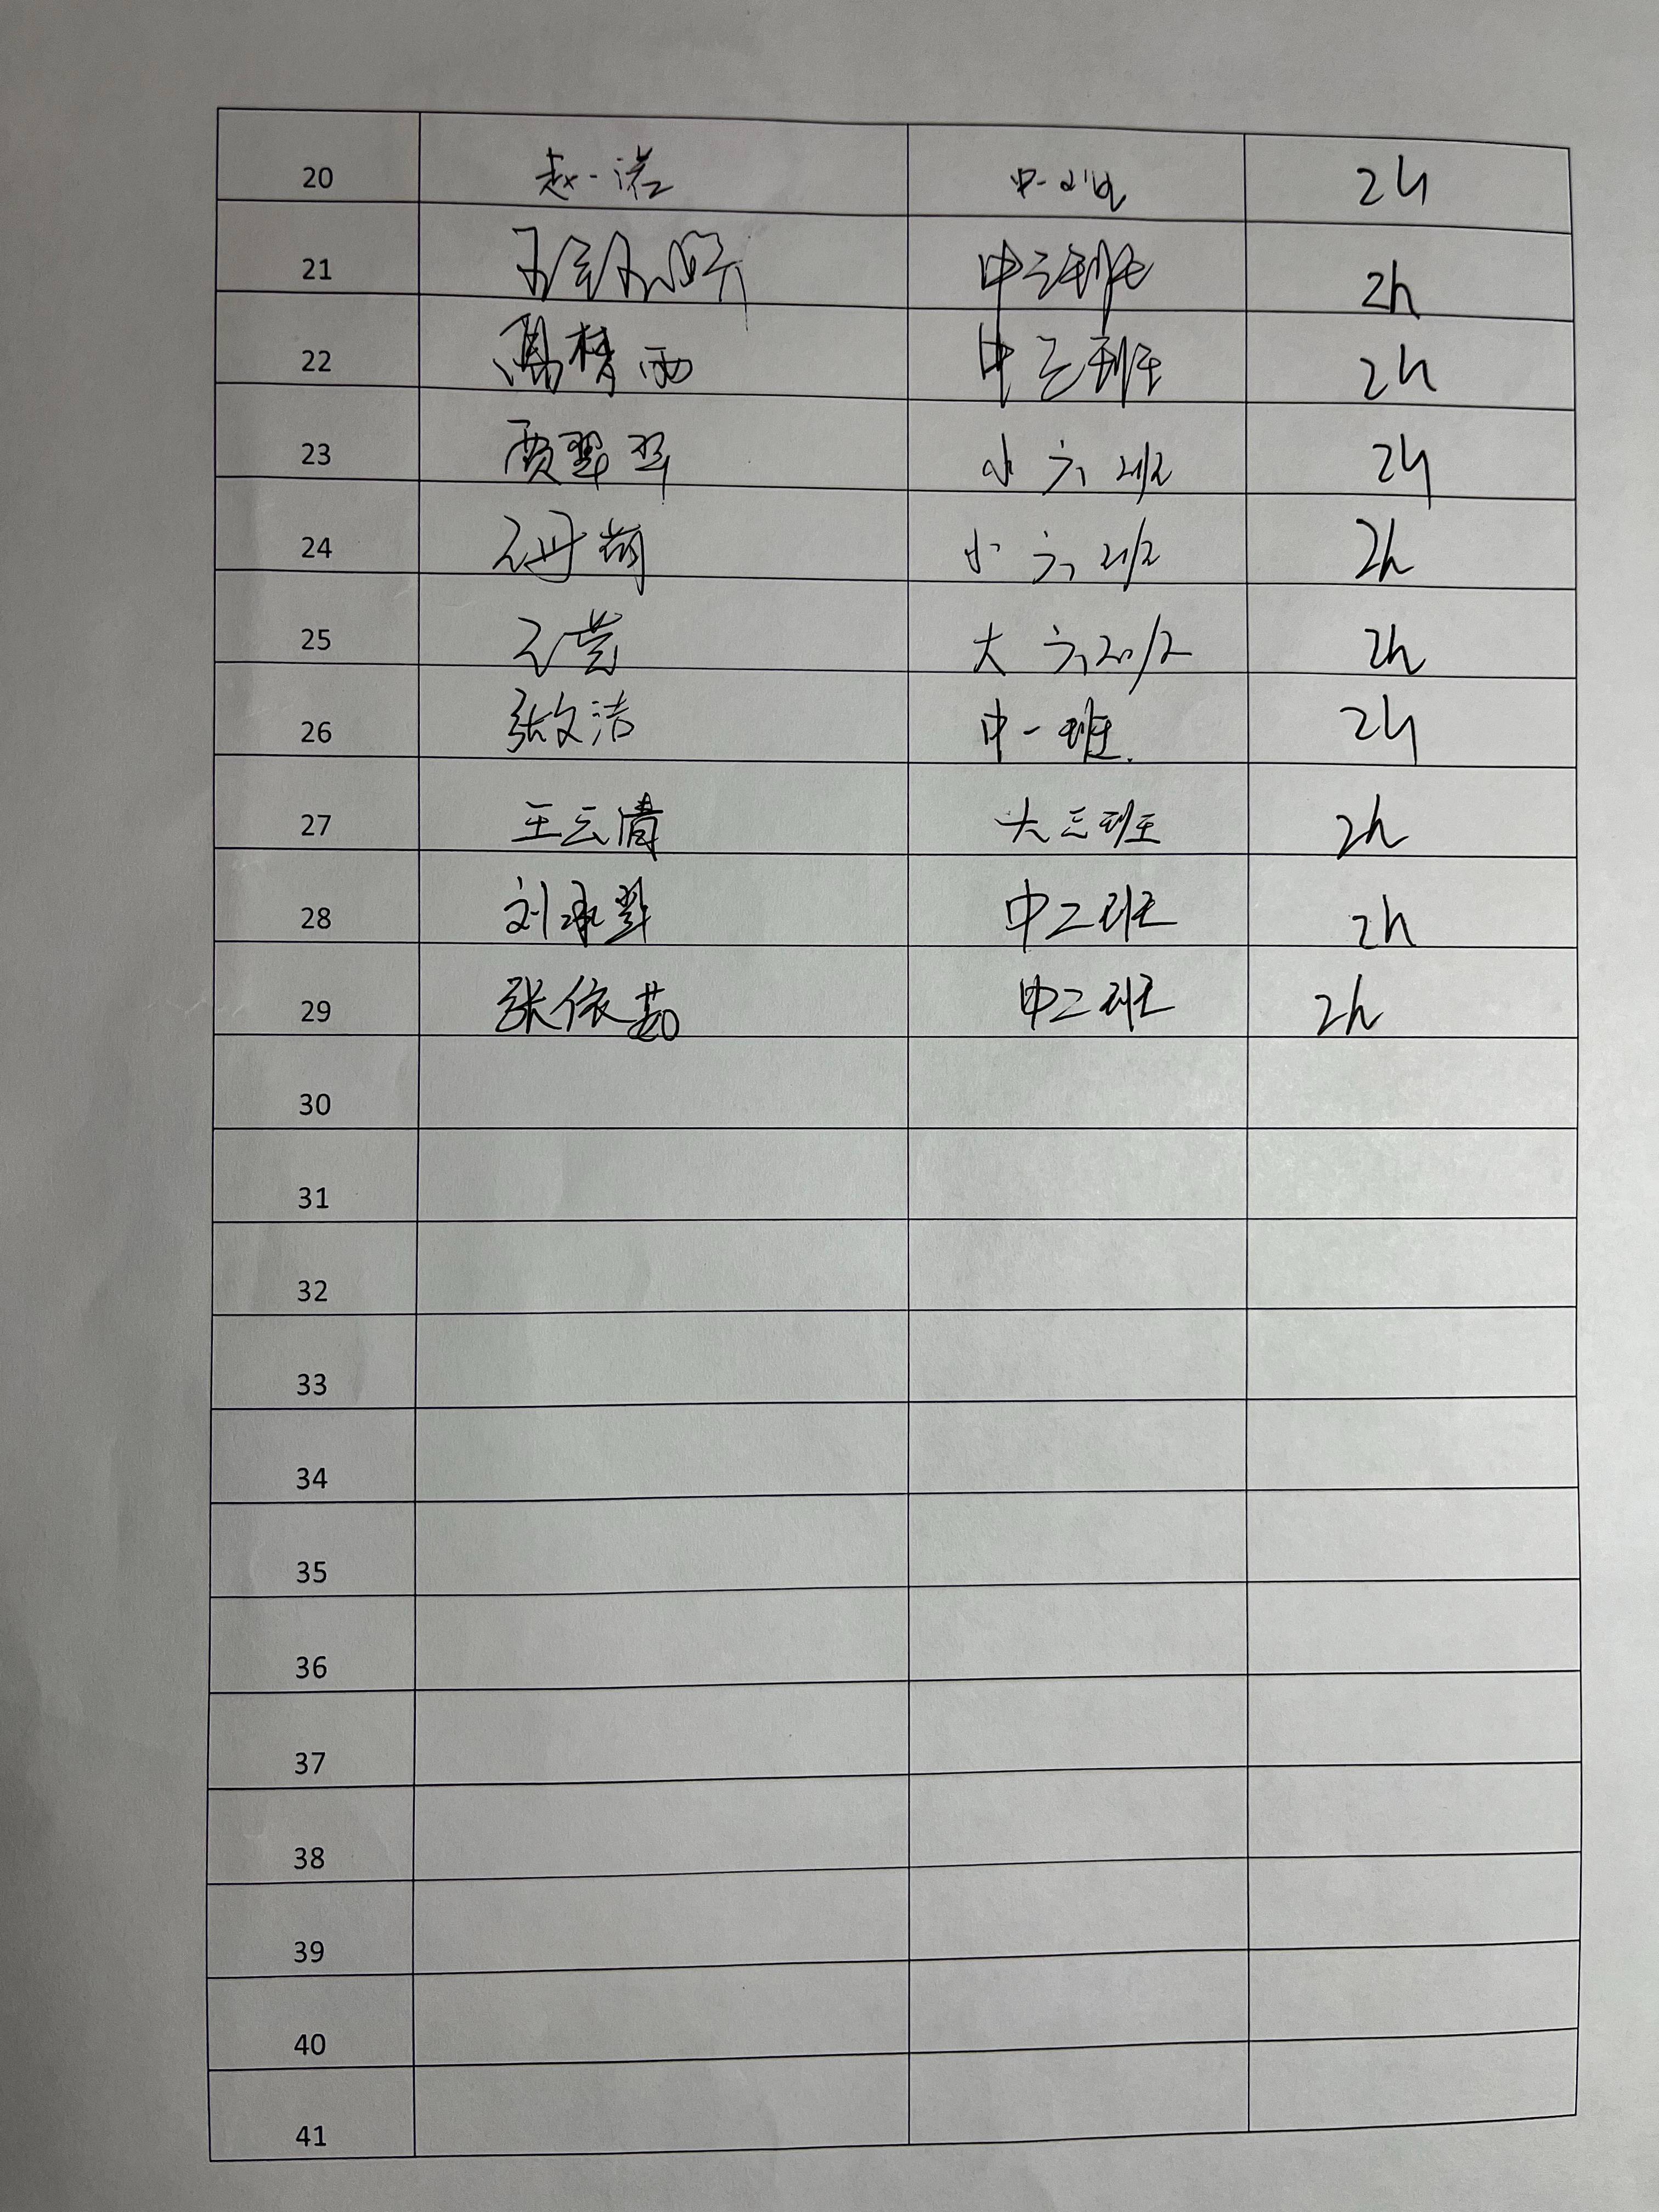 20 赵一诺 中一班 2h
21 王 中三班 2h
22 高梦雨 中三班 2h
23 贾翠翠 小六班 2h
24 石丹萌 小六班 2h
25 石芸 大六班 2h
26 张文洁 中一班. 2h
27 王云清 大三班 2h
28 刘承翠 中二班 2h
29 张依茹 中二班 2h
30
31
32
33
34
35
36
37
38
39
40
41